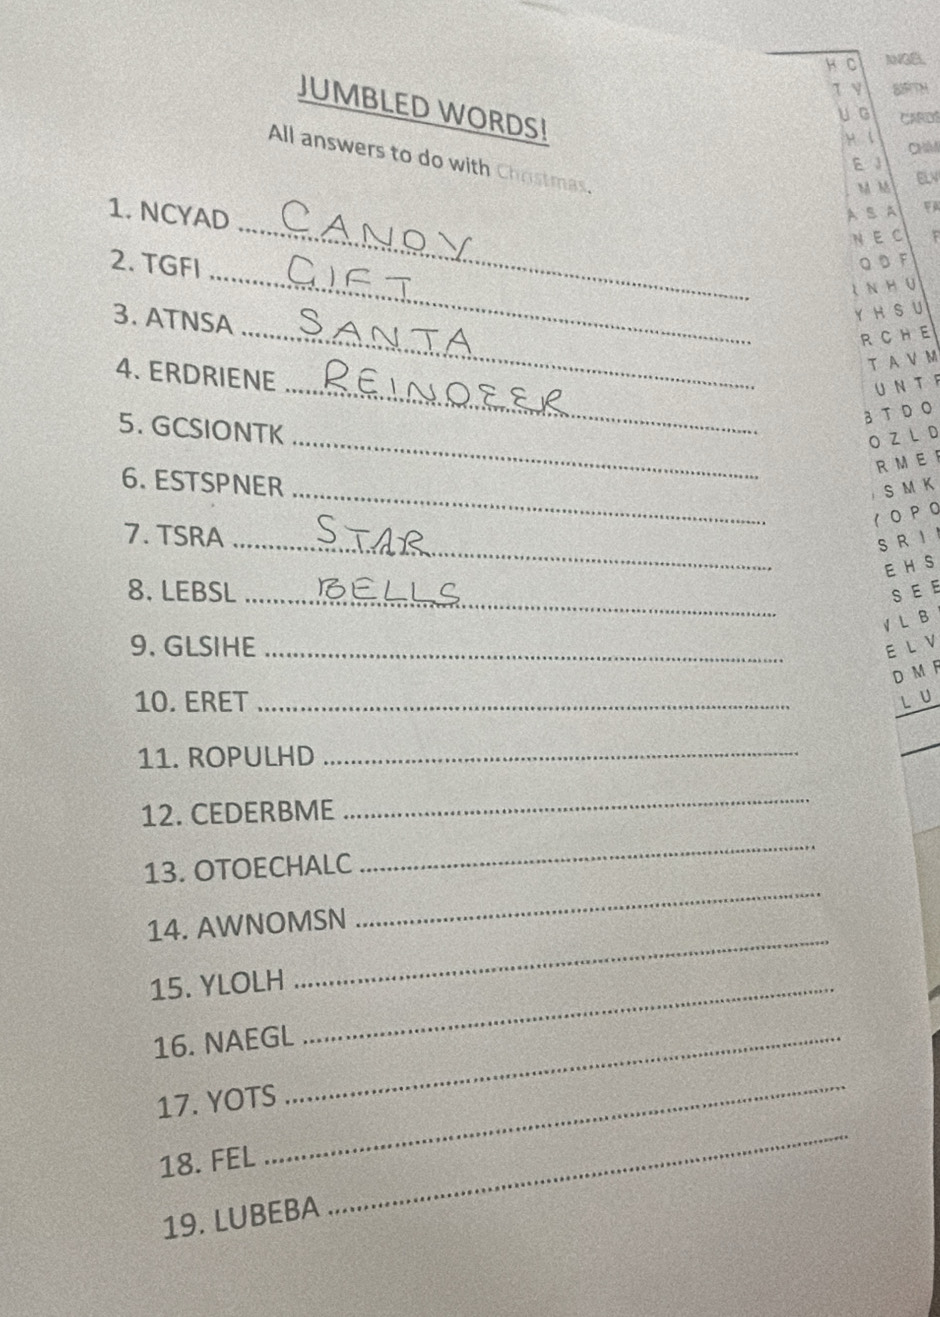 JUMBLED WORDS!
All answers to do with Christmas.
1. NCYAD CANDY
2. TGFI GIFT
3. ATNSA SANTA
4. ERDRIENE REINDEER
5. GCSIONTK
6. ESTSPNER
7. TSRA STAR
8. LEBSL BELLS
9. GLSIHE
10. ERET
11. ROPULHD
12. CEDERBME
13. OTOECHALC
14. AWNOMSN
15. YLOLH
16. NAEGL
17. YOTS
18. FEL
19. LUBEBA
H C
T Y
U G
H I
E J
M M
A S A
N E C
Q D F
I N H U
Y H S U
R C H E
T A V M
U N T F
B T D O
O Z L D
R M E
S M K
O P O
S R I
E H S
S E E
L B
E L V
D M F
L U
ANGEL
BIRTH
CARDS